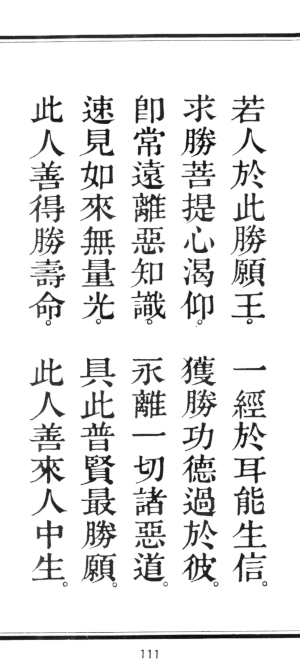 若人於此勝願王。　一經於耳能生信。
求勝菩提心渴仰。　獲勝功德過於彼。
卽常遠離惡知識。　永離一切諸惡道。
速見如來無量光。　具此普賢最勝願。
此人善得勝壽命。　此人善來人中生。
111